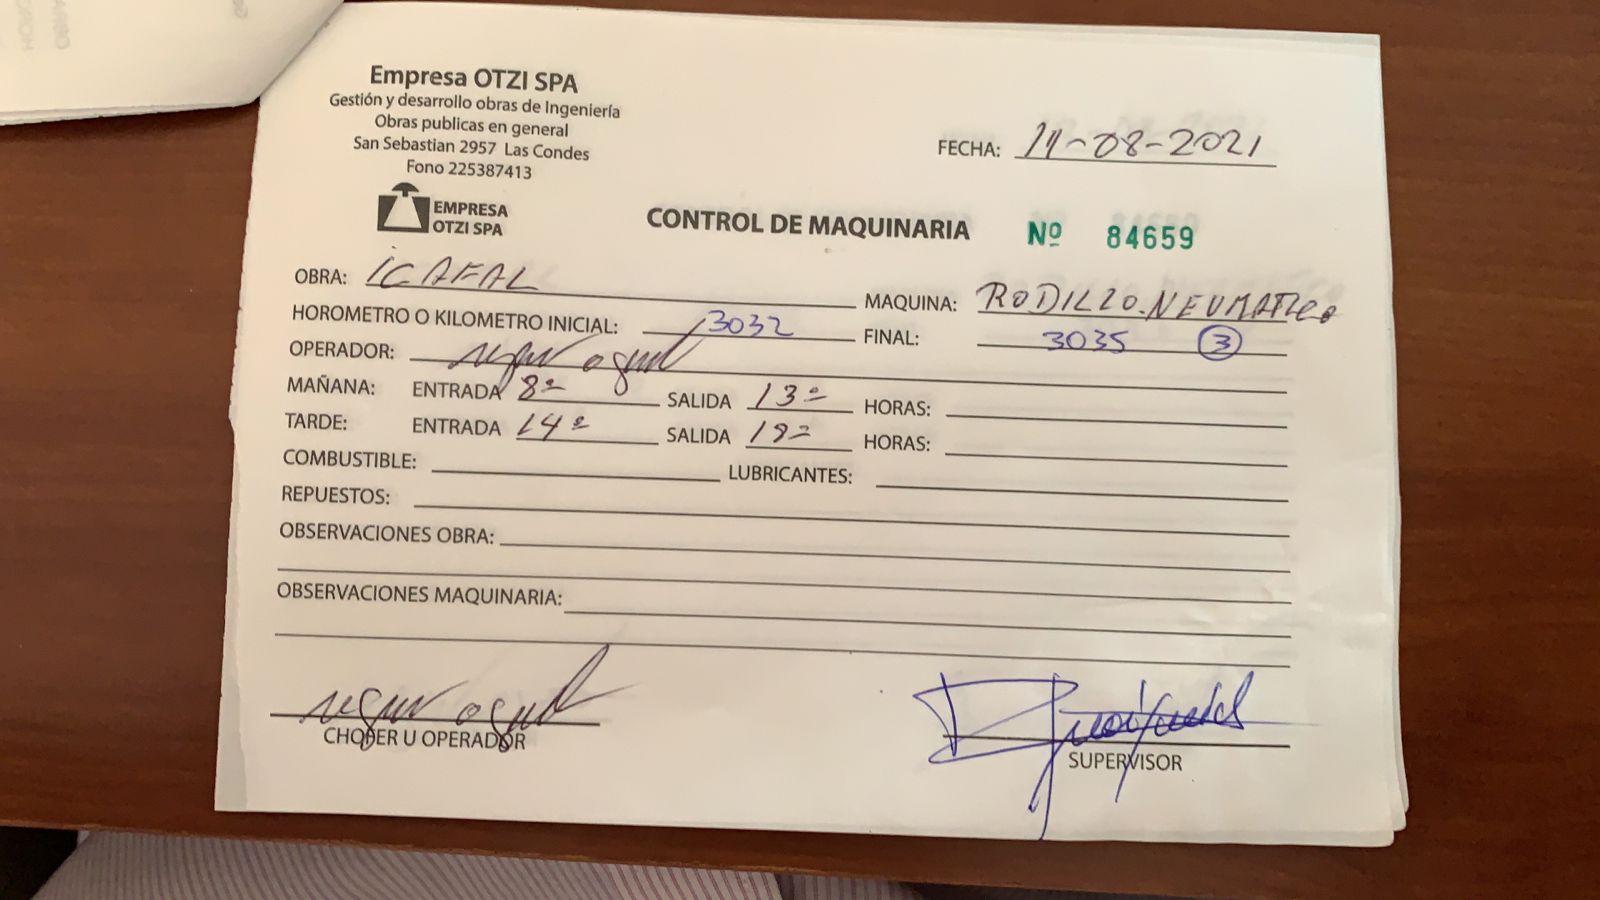 Empresa OTZI SPA
Gestión y desarrollo obras de Ingeniería
Obras publicas en general
San Sebastian 2957 Las Condes
Fono 225387413
EMPRESA
OTZI SPA
FECHA: 11-08-2021
CONTROL DE MAQUINARIA Nº 84659
OBRA: ICAFAL MAQUINA: RODILLO.NEUMATICO
HOROMETRO O KILOMETRO INICIAL: 3032 FINAL: 3035 3
OPERADOR:
MAÑANA: ENTRADA 8º SALIDA 13º HORAS:
TARDE: ENTRADA 14º SALIDA HORAS:
COMBUSTIBLE: LUBRICANTES:
REPUESTOS:
OBSERVACIONES OBRA:
OBSERVACIONES MAQUINARIA:
CHOFER U OPERADOR
SUPERVISOR